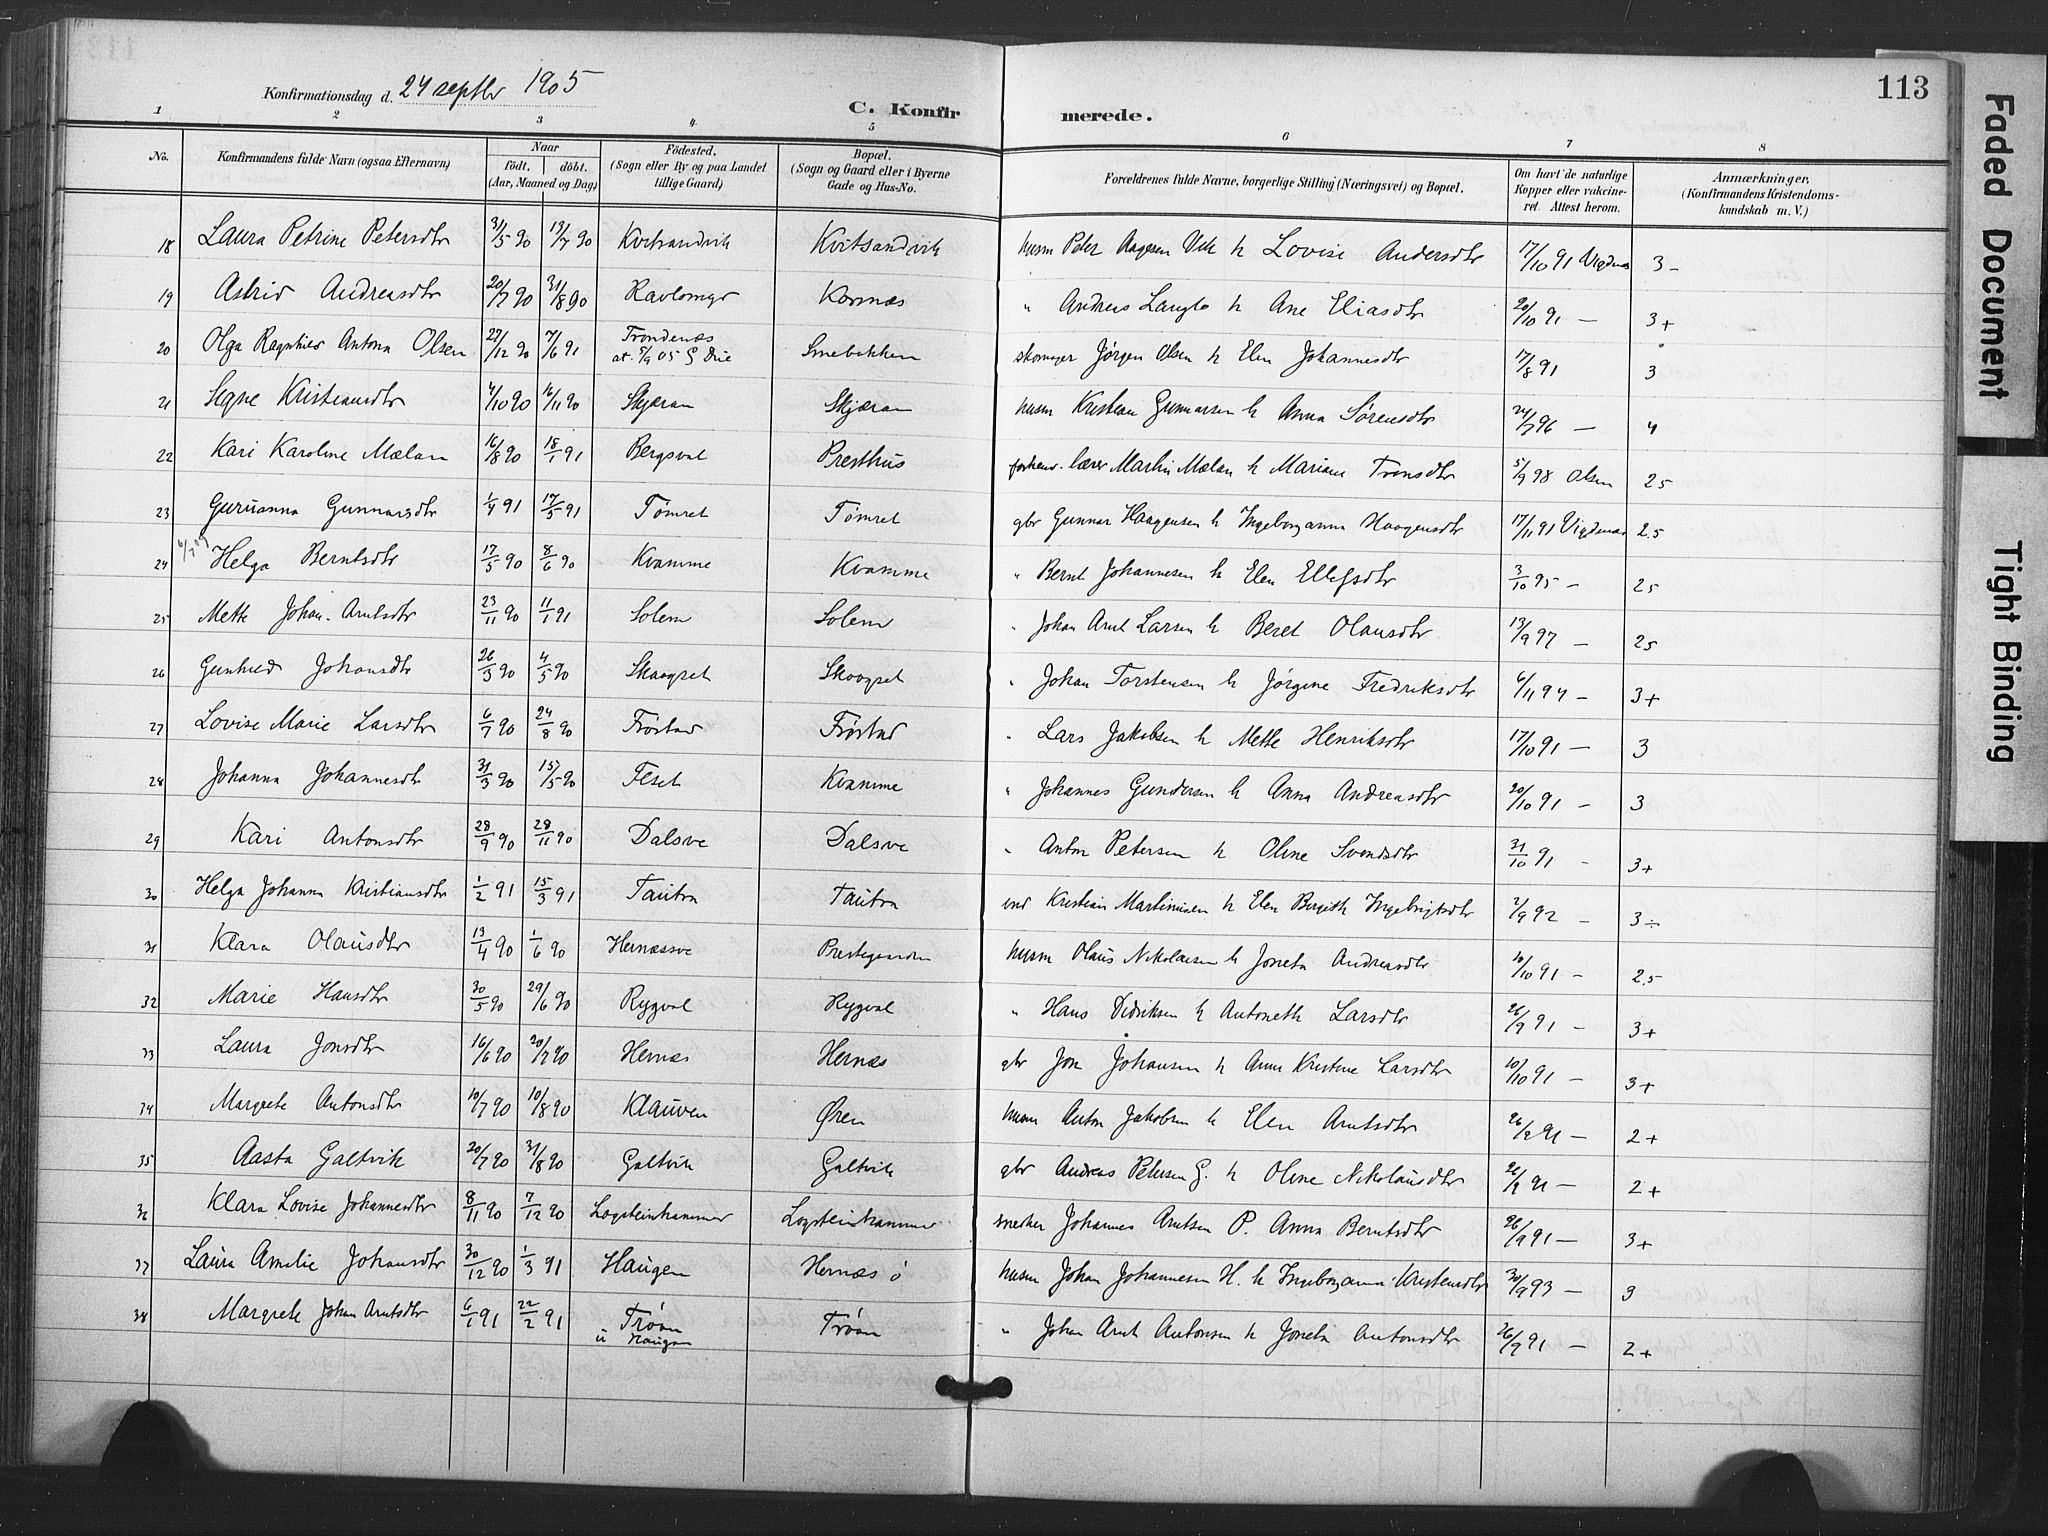 113
Konfirmationsdag d. 24 septbr 1905
C. Konfirmerede.
1 2 3 4 5 6 7 8
No. Konfirmandens fulde Navn (ogsaa Efternavn) Naar født. døbt. (Aar, Maaned og Dag) Fødested. (Sogn eller By og paa Landet tillige Gaard) Bopæl. (Sogn og Gaard eller i Byerne Gade og Hus-No. Forældrenes fulde Navne, borgerlige Stilling (Næringsvei) og Bopæl. Om havt de naturlige Kopper eller vakcineret. Attest herom. Anmærkninger. (Konfirmandens Kristendomskundskab m. V.)
18 Laura Petrine Petersdtr 31/5 90 13/7 90 Kvitsandvik Kvitsandvik husm Peter Aagesen Vik h Lovise Andersdtr 17/10 91 Vigdenes 3-
19 Astrid Andreasdtr 20/7 90 31/8 90 Ravlomyr Korsnæs " Andreas Langlo h Ane Eliasdtr 20/10 91 — 3+
20 Olga Ragnhild Antona Olsen 27/12 90 7/6 91 Trondenæs Smebakken skomager Jørgen Olsen h Elen Johannesdtr 17/8 91 3
21 Signe Kristiansdtr 4/10 90 16/11 90 Skjæran Skjæran husm Kristian Gunnarsen h Anna Sørensdtr 24/7 96 — 4
22 Kari Karoline Mælan 16/8 90 18/1 91 Bergsval Presthus forhenv. lærer Martin Mælan h Mariane Tronsdtr 5/9 98 Olsen 2.5
23 Gurianna Gunnarsdtr 1/4 91 17/5 91 Tømret Tømret gbr Gunnar Haagensen h Ingeborganna Haagensdtr 17/11 91 Vigdenæs 2.5
24 Helga Berntsdtr 17/5 90 8/6 90 Kvamme Kvamme " Bernt Johannesen h Elen Ellefsdtr 3/10 95 — 2.5
25 Mette Johan-Arntsdtr 23/11 90 11/1 91 Solem Solem " Johan Arnt Larsen h Beret Olausdtr 13/9 97 — 2.5
26 Gunhild Johansdtr 26/3 90 4/5 90 Skaagset Skaagset " Johan Torstensen h Jørgine Fredriksdtr 6/11 94 — 3+
27 Lovise Marie Larsdtr 6/7 90 24/8 90 Frøstad Frøstad " Lars Jakobsen h Mette Henriksdtr 17/10 91 — 3
28 Johanna Johannesdt 31/3 90 15/5 90 Feset Kvamme " Johannes Gundersen h Anna Andreasdtr 20/10 91 — 3
29 Kari Antonsdtr 28/9 90 28/11 90 Dalsve Dalsve " Anton Petersen h Oline Svendsdtr 31/10 91 - 3+
30 Helga Johanna Kristiansdtr 1/2 91 15/3 91 Tautra Tautra ind Kristian Martinusen h Elen Birgith Ingebrigtsdtr 2/9 92 — 3÷
31 Klara Olausdtr 13/4 90 1/6 90 Hernæssve Prestegaarden husm Olaus Nikolaisen h Joneta Andreasdtr 20/10 91 - 2.5
32 Marie Hansdtr 30/5 90 29/6 90 Rygval Rygval " Hans Didriksen h Antoneth Larsdtr 26/9 91 — 3+
33 Laura Jonsdtr 16/6 90 20/7 90 Hernæs Hernæs gbr Jon Johansen h Anne Kristine Larsdtr 10/10 91 — 3+
34 Margrete Antonsdtr 10/7 90 10/8 90 Klauven Øren husm Anton Jakobsen h Elen Arntsdtr 26/9 91 — 2+
35 Aasta Galtvik 20/7 90 31/8 90 Galtvik Galtvik gbr Andreas Petersen G. h Oline Nikolausdtr 26/9 91 — 2+
36 Klara Lovise Johannesdtr 8/11 90 7/12 90 Logsteinhammer Logsteinhammer snedker Johannes Arntsen P. Anna Berntsdtr 26/9 91 — 3+
37 Laura Amelie Johansdtr 30/12 90 1/3 91 Haugen Hernæs ø husm Johan Johannesen H. h Ingeborganna Kristensdtr 30/9 93 — 3
38 Margrete Johan Arntsdtr 6/1 91 22/2 91 Trøan u Haugan Trøan " Johan Arnt Antonsen h Joneta Antonsdtr 26/9 91 — 2+
Faded Document
Tight Binding